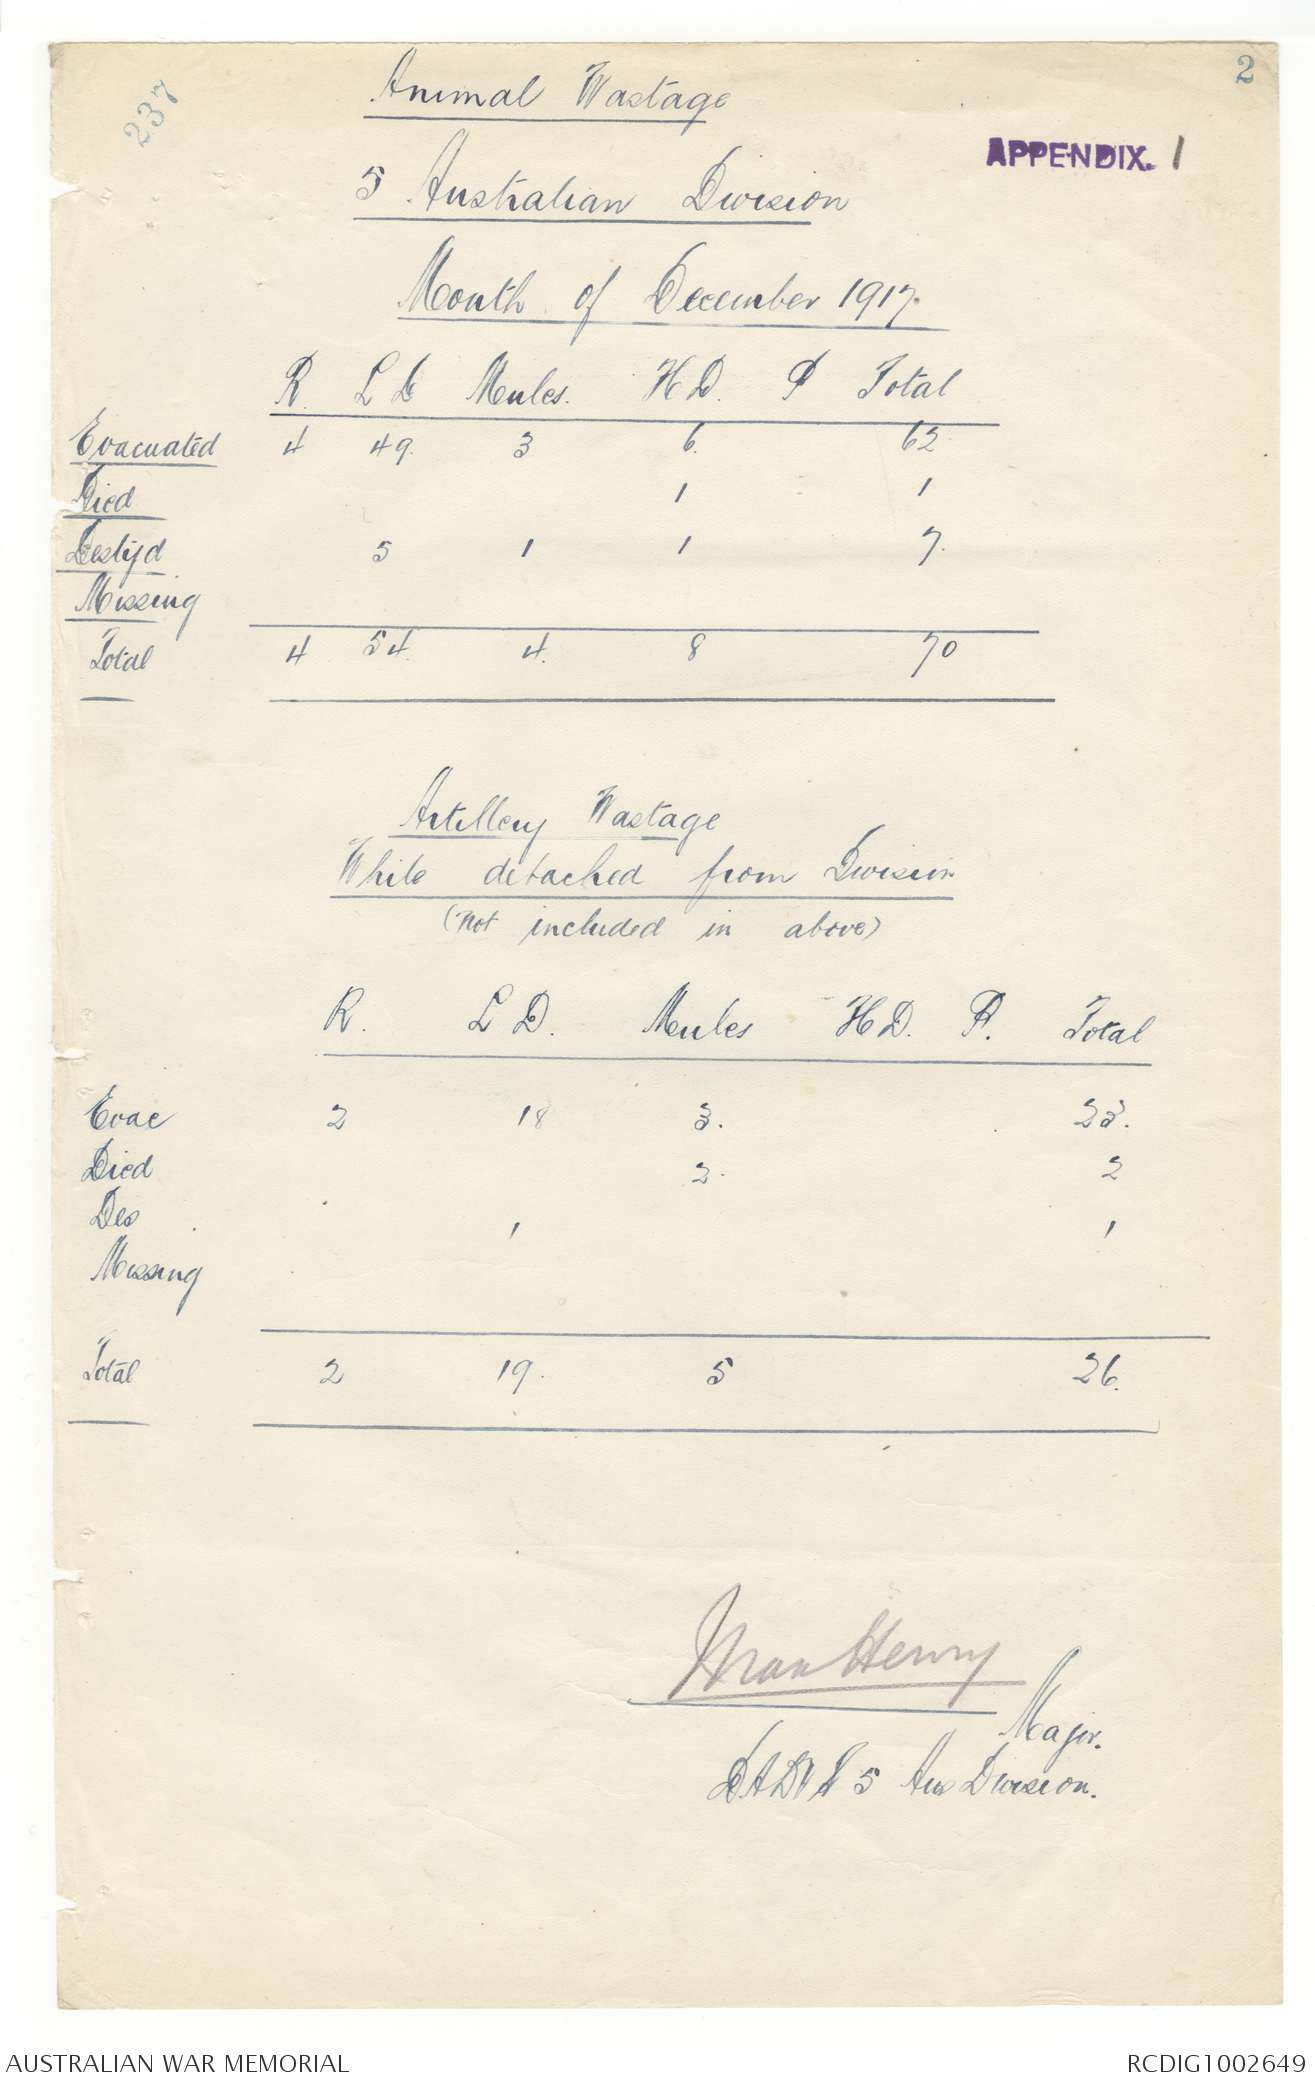 237
2
Animal Wastage
APPENDIX. 1
5 Australian Division
Month of December 1917.
R. L D Mules. H D. P Total
Evacuated 4 49. 3 6. 62
Died 1 1
Destyd 5 1 1 7.
Missing
Total 4 54. 4. 8 70
Artillery Wastage
While detached from Division
(Not included in above)
R. L D. Mules H D. P. Total
Evac 2 18 3. 23.
Died 2. 2
Des 1 1
Missing
Total 2 19. 5 26.
Max Henry
Major.
DADVS 5 Aus Division.
AUSTRALIAN WAR MEMORIAL RCDIG1002649